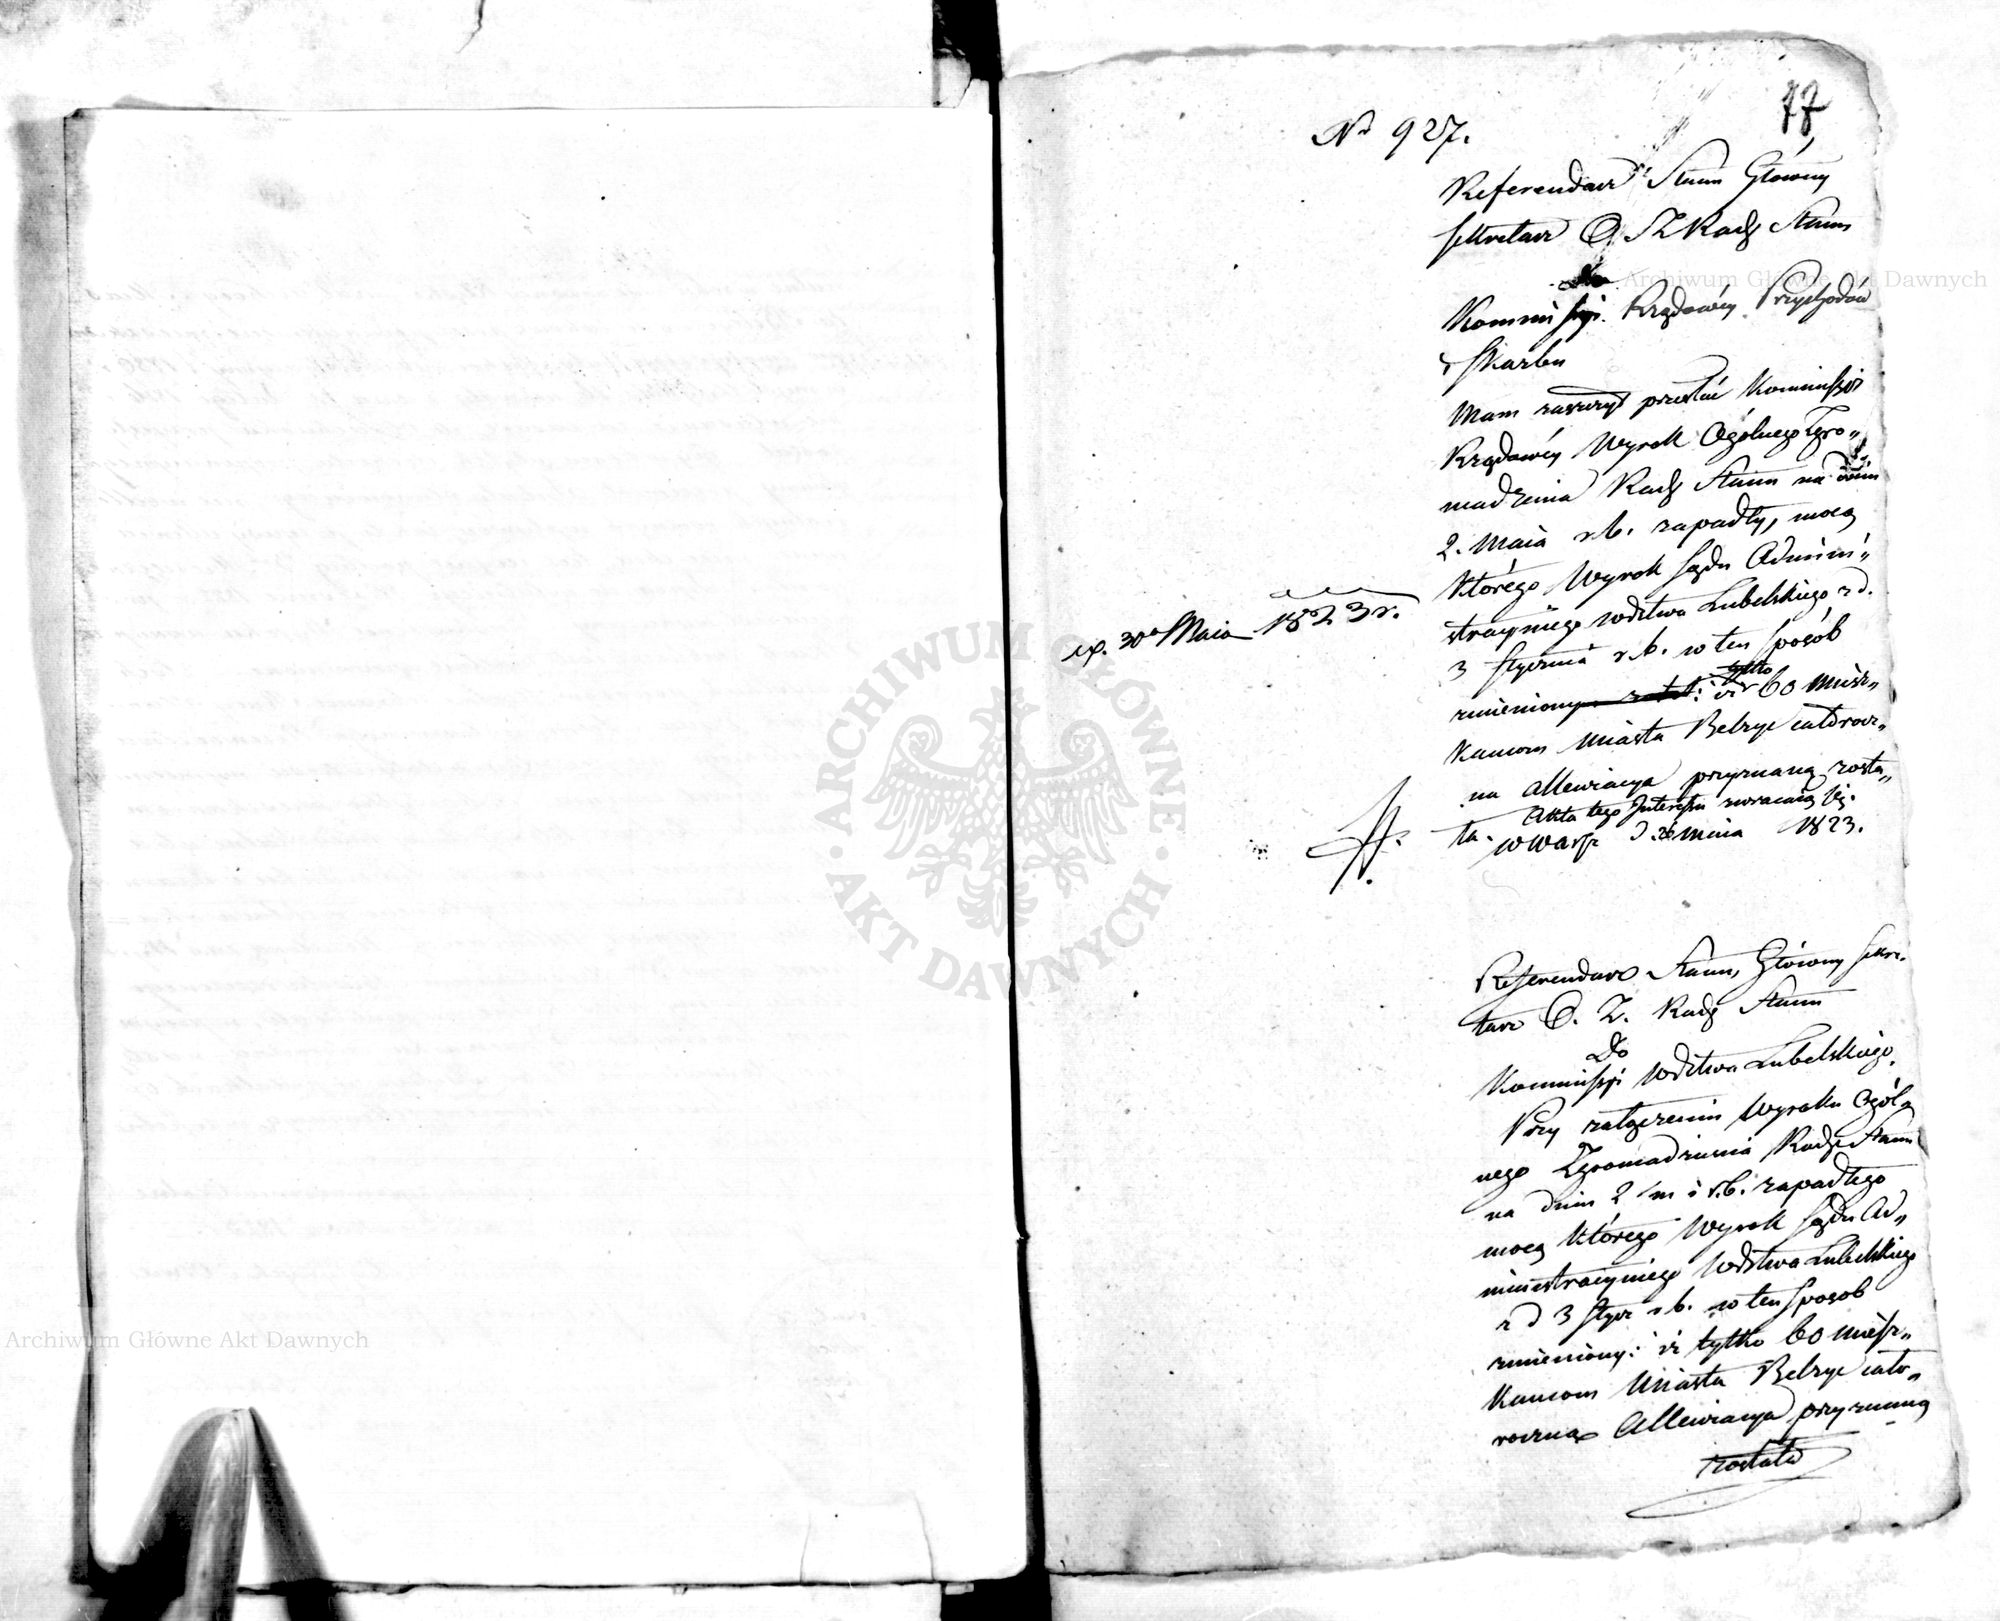 77
No 927.
Referendarz Stanu Główny
Sekretarz O Z Rady Stanu
do
Kommissyi Rządowéy Przychodów
i Skarbu
Mam zaszczyt przesłać Kommissyi
Rządowéy Wyrok Ogólnego Zgro„
madzenia Rady Stanu na dniu
2. Maia r.b. zapadły, mocą
którego Wyrok Sądu Admini„
stracyinego Wdztwa Lubelskiego z d.
3 Stycznia r.b. w ten sposób
zmieniony: iż tylko 60 miesz„
kańcom Miasta Bełżyc całorocz„
na allewiacya przyznaną zosta„
ła. Akta tego Interessu zwracaią się.
w Warsz d. Maia 1823.
exp. 30o Maia 1823 r.
Referendarz Stanu, Główny Sekre„
tarz O. Z. Rady Stanu
Do
Kommissyi Wdztwa Lubelskiego.
Przy załączeniu Wyroku Ogól„
nego Zgromadzenia Rady Stanu
na dniu 2 m i r.b. zapadłego
mocą którego Wyrok Sądu Ad„
ministracyinego Wdztwa Lubelskiego
z d 3 Stycz r b. w ten sposób
zmieniony: iż tylko 60 miesz„
kańcom Miasta Bełżyc cało„
roczna Allewiacya przyznaną
została
Archiwum Główne Akt Dawnych
ARCHIWUM GŁÓWNE · AKT DAWNYCH ·
Archiwum Główne Akt Dawnych